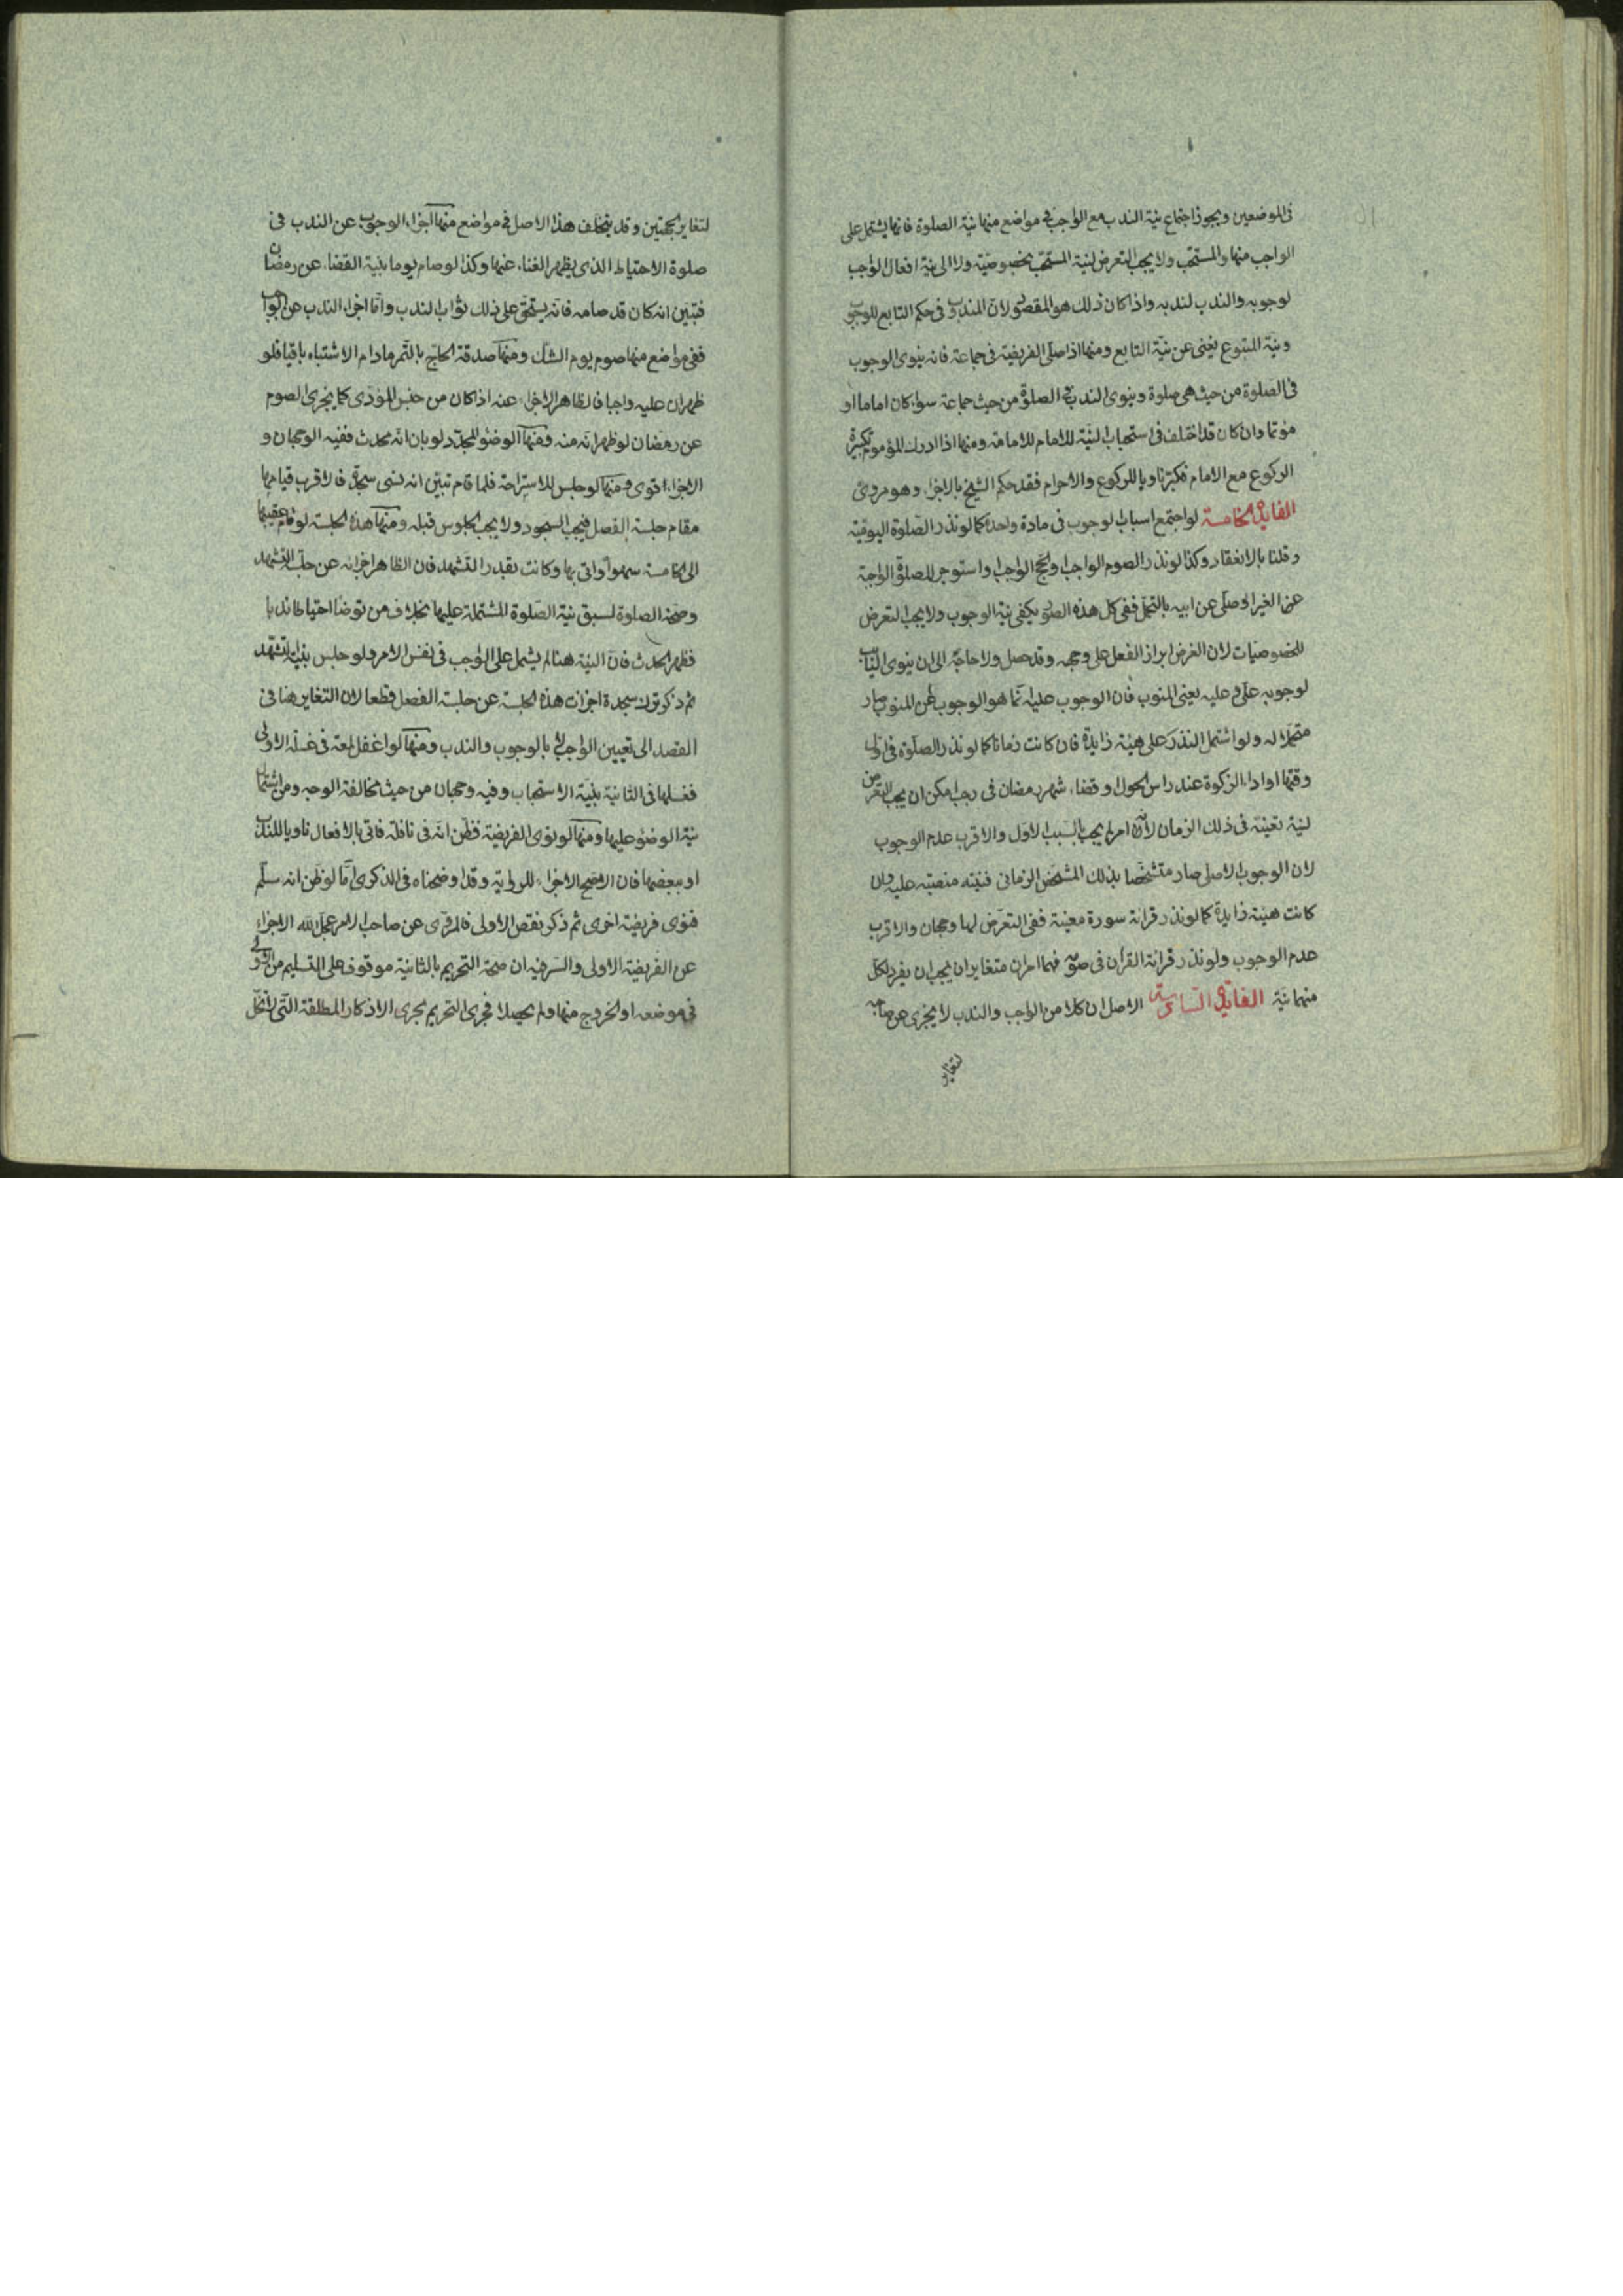 فى الموضعين ويجوز اجتماع نية الندب مع الواجب فى مواضع منها نية الصلوة فانها يشتمل على
الواجب منها والمستحب ولا يجب التعرض لنية المستحب بخصوصيته ولا الى نية افعال الواجب
لوجوبه والندب لندبه واذا كان ذلك هو المقصود لان المندوب فى حكم التابع للوجوب
ونية المتبوع يغنى عن نية التابع ومنها اذا صلى الفريضة فى جماعة فانه ينوى الوجوب
فى الصلوة من حيث هى صلوة وينوى الندب فى الصلوة من حيث جماعة سواء كان اماما او
مؤتما وان كان قد اختلف فى استحباب النية للامام للامامة ومنها اذا ادرك المؤموم تكبيرة
الركوع مع الامام فكبر ناويا للركوع والاحرام فقد حكم الشيخ بالاجزاء وهو مروى
الفايدة الخامسة لو اجتمع اسباب الوجوب فى مادة واحدة كما لو نذر الصلوة اليومية
وقلنا بالانعقاد وكذا لو نذر الصوم الواجب او الحج الواجب او استوجر للصلوة الواجبة
عن الغير او صلى عن ابيه بالتحمل ففى كل هذه الصور يكفى نية الوجوب ولا يجب التعرض
للخصوصيات لان الغرض ابراز الفعل على وجهه وقد حصل ولا حاجة الى ان ينوى النايب
لوجوبه على وعليه يعنى المنوب فان الوجوب عليه انما هو الوجوب على المنوب صار
متحملا له ولو اشتمل النذر على هيئة زايدة فان كانت زمانا كما لو نذر الصلوة فى اول
وقتها او اداء الزكوة عند راس الحول او قضاء شهر رمضان فى رجب امكن ان يجب التعرض
لنية تعينه فى ذلك الزمان لانه امر لم يجب بالسبب الاول والاقرب عدم الوجوب
لان الوجوب الاصلى صار متشخصا بذلك المشخص الزمانى فنيته منصبة عليه وان
كانت هيئة زايدة كما لو نذر قرائة سورة معينة ففى التعرض لها وجهان والاقرب
عدم الوجوب ولو نذر قرائة القران فى صلوة فهما امران متغايران يجب ان يفرد لكل
منهما نية الفائدة السادسة الاصل ان كلا من الواجب والندب لا يجزى عن صاحبه
لتغاير
لتغاير الجهتين وقد يتخلف هذا الاصل فى مواضع منها اجزاء الوجوب عن الندب فى
صلوة الاحتياط الذى يظهر الغناء عنها وكذا لو صام يوما بنية القضاء عن رمضان
فتبين انه كان قد صامه فانه يستحق على ذلك ثواب الندب واما اجزاء الندب عن الواجب
ففى مواضع منها صوم يوم الشك ومنها صدقة الحاج بالتمر مادام الاشتباه باقيا فلو
ظهر ان عليه واجبا فالظاهر الاجزاء عنه اذا كان من جنس المؤدى كما يجزى الصوم
عن رمضان لو ظهر انه منه ومنها الوضوء المجدد لو بان انه محدث ففيه الوجهان و
الاجزاء اقوى ومنها لو جلس للاستراحة فلما قام تبين انه نسى سجدة فالاقرب قيامها
مقام جلسة الفصل فيجب السجود ولا يجب الجلوس قبله ومنها هذه الجلسة لو قام عقيبها
الى الخامسة سهوا واتى بها وكانت بقدر التشهد فان الظاهر اجزائه عن جلسة التشهد
وصحة الصلوة لسبق نية الصلوة المشتملة عليها بخلاف من توضا احتياطا ندبا
فظهر الحدث فان النية هنا لم يشمل على الواجب فى نفس الامر ولو جلس بنية التشهد
ثم ذكر ترك سجدة اجزات هذه الجلسة عن جلسة الفصل قطعا لان التغاير هنا فى
القصد الى تعيين الواجب لا بالوجوب والندب ومنها لو اغفل لمعة فى غسلة الاولى
فغسلها فى الثانية بنية الاستحباب وفيه وجهان من حيث مخالفة الوجه ومن اشتمال
نية الوضوء عليها ومنها لو نوى الفريضة فظن انه فى نافلة فاتى بالافعال ناويا للندب
او ببعضها فان الاصح الاجزاء للرواية وقد اوضحناه فى الذكرى اما لو ظن انه سلم
فنوى فريضة اخرى ثم ذكر نقص الاولى فالمروى عن صاحب الامر عجل الله الاجزاء
عن الفريضة الاولى والسر فيه ان صحة التحريم بالثانية موقوف على التسليم من الاولى
فى موضعه او الخروج منها ولم يحصلا فجرى التحريم مجرى الاذكار المطلقة التى لا تخل